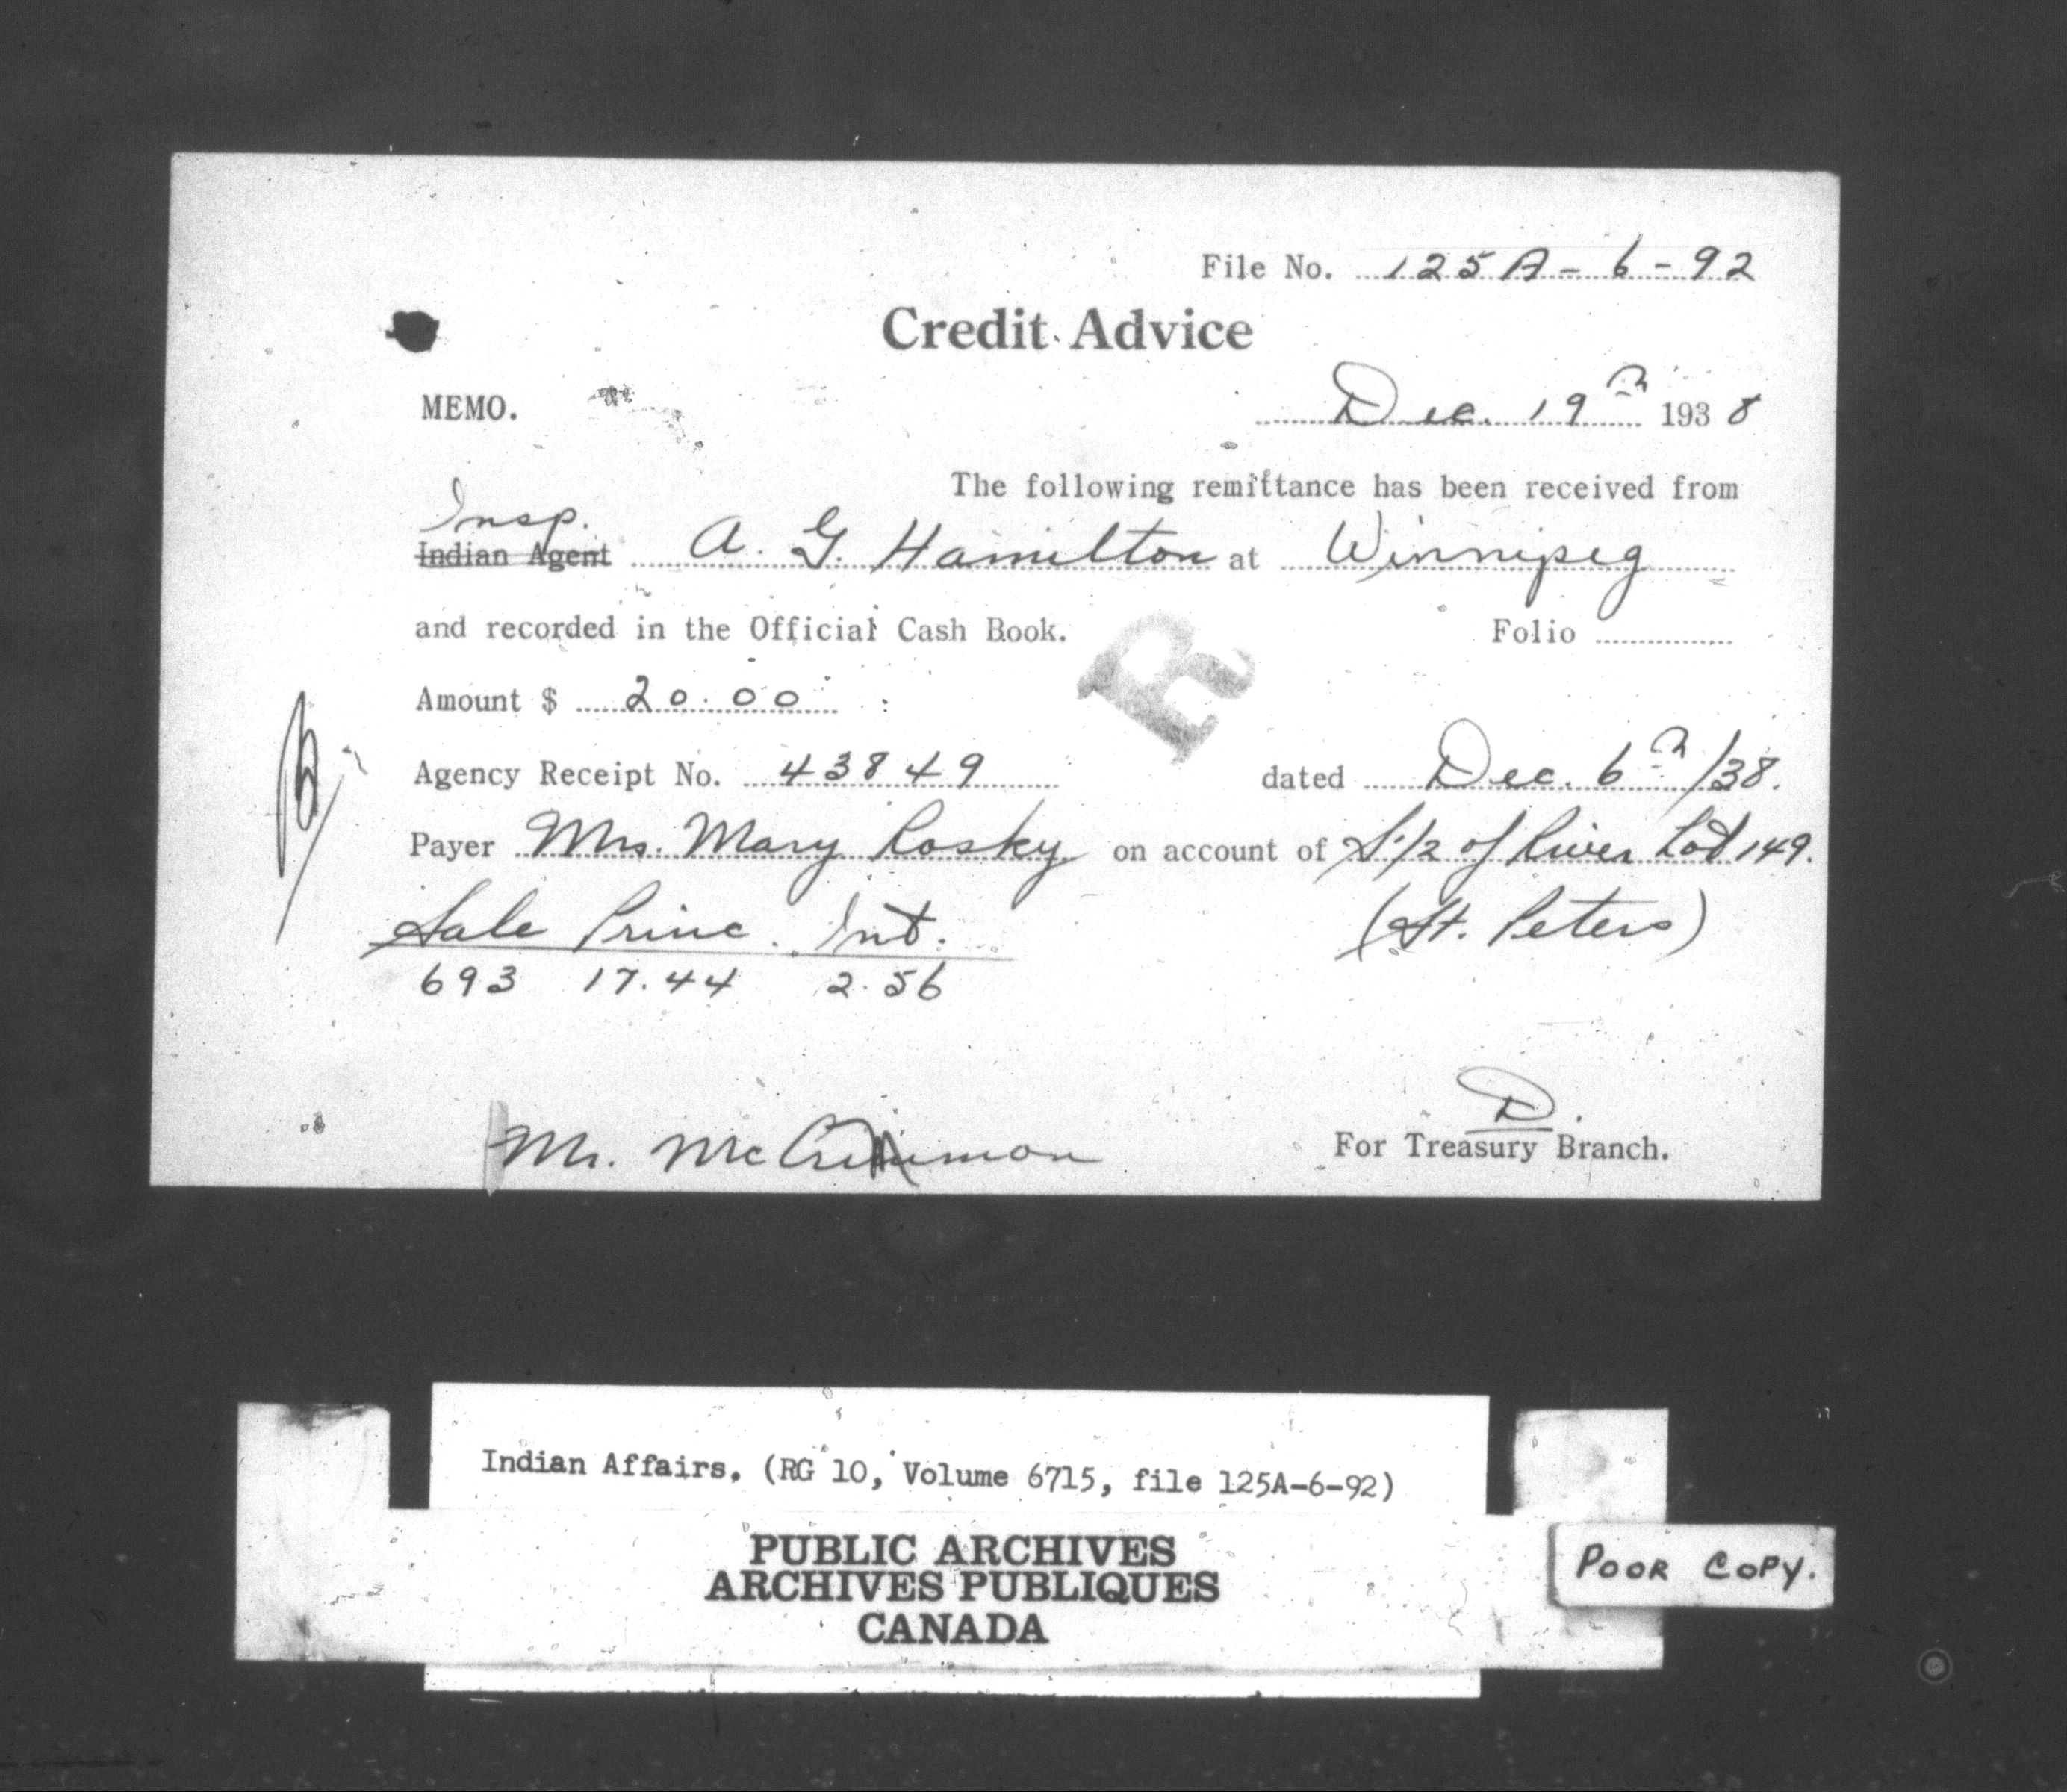 File No. 125A-6-92
Credit Advice
MEMO.
Dec. 19th 1938
The following remittance has been received from
Insp.
Indian Agent A. G. Hamilton at Winnipeg
and recorded in the Official Cash Book. Folio
R
Amount $ 20.00
Agency Receipt No. 43849 dated Dec. 6th/38.
Payer Mrs. Mary Rosky on account of S.1/2 of River Lot 149.
Sale Princ. Int. (St. Peters)
693 17.44 2.56
D.
Mr. For Treasury Branch.
Indian Affairs. (RG 10, Volume 6715, file 125A-6-92)
PUBLIC ARCHIVES
ARCHIVES PUBLIQUES
CANADA
POOR COPY.